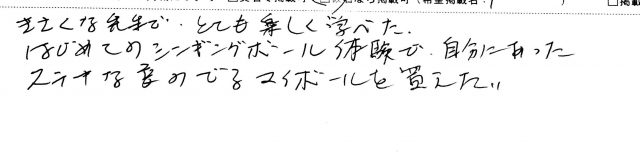 きさくな先生で、とても楽しく学べた。
はじめてのシンギングボール体験で、自分にあった
ステキな音のでるマイボールを買えた!!